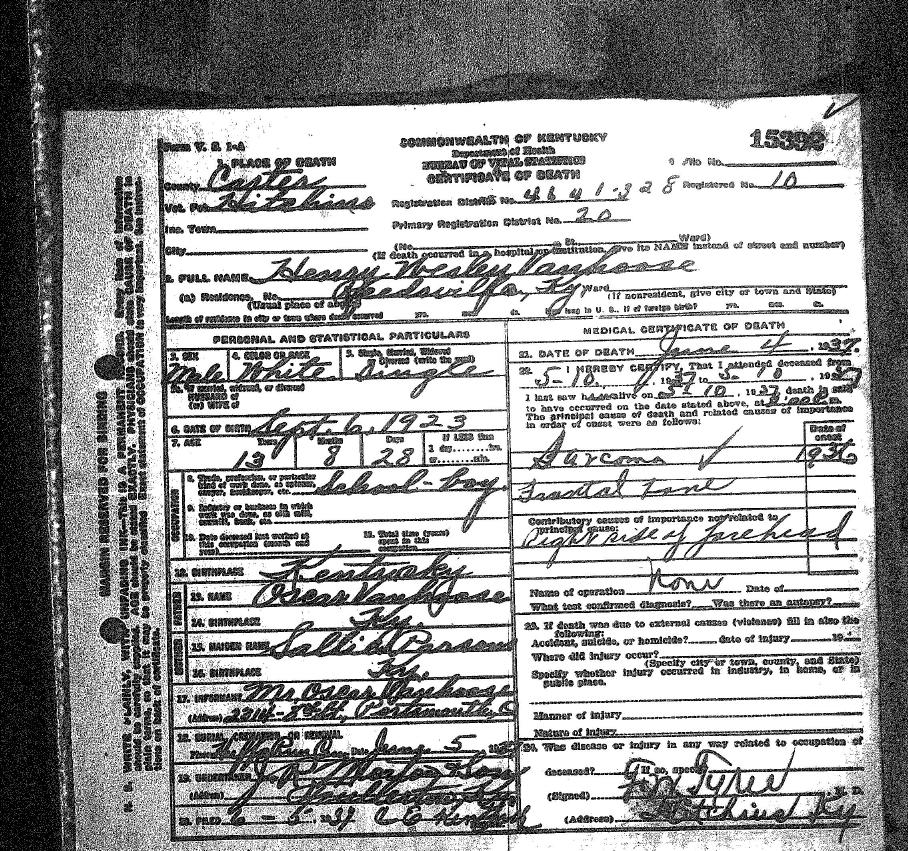 Form V. S. 1-A
COMMONWEALTH OF KENTUCKY
Department of Health
BUREAU OF VITAL STATISTICS
CERTIFICATE OF DEATH
15392
File No.
1. PLACE OF DEATH
County Carter
Vot. Pct. Hitchins
Registration District No. 4641-328 Registered No. 10
Inc. Town
Primary Registration District No. 20
City (No. St. Ward)
(If death occurred in a hospital or institution, give its NAME instead of street and number)
2. FULL NAME Henry Wesley Vanhoose
(a) Residence, No. Ky Ward
(Usual place of abode) (If nonresident, give city or town and State)
Length of residence in city or town where death occurred yrs. mos. ds. How long in U. S., if of foreign birth? yrs. mos. ds.
PERSONAL AND STATISTICAL PARTICULARS
3. SEX 4. COLOR OR RACE 5. Single, Married, Widowed or Divorced (write the word)
Male White Single
5a. If married, widowed, or divorced
HUSBAND of
(or) WIFE of
6. DATE OF BIRTH Sept. 6, 1923
7. AGE Years Months Days If LESS than
1 day hrs.
13 8 28 or min.
OCCUPATION
8. Trade, profession, or particular kind of work done, as spinner, sawyer, bookkeeper, etc. School-boy
9. Industry or business in which work was done, as silk mill, sawmill, bank, etc.
10. Date deceased last worked at this occupation (month and year)
11. Total time (years) spent in this occupation
12. BIRTHPLACE Kentucky
FATHER
13. NAME Oscar Vanhoose
14. BIRTHPLACE Ky.
MOTHER
15. MAIDEN NAME Sallie Parsons
16. BIRTHPLACE Ky.
17. INFORMANT Mr. Oscar Vanhoose
(Address) 2314-8th St., Portsmouth, O
18. BURIAL, CREMATION, OR REMOVAL
Place Date June 5 1937
19. UNDERTAKER
(Address) Ky
20. FILED 6-5-37
MEDICAL CERTIFICATE OF DEATH
21. DATE OF DEATH June 4, 1937.
22. I HEREBY CERTIFY, That I attended deceased from
5-10, 1937 to 5-10, 1937
I last saw h alive on 5-10, 1937 death is said
to have occurred on the date stated above, at
The principal cause of death and related causes of importance
in order of onset were as follows:
Date of onset
Sarcoma ✓ 1936
Frontal
Contributory causes of importance not related to
principal cause:
Right side of forehead
Name of operation none Date of
What test confirmed diagnosis? Was there an autopsy?
23. If death was due to external causes (violence) fill in also the
following:
Accident, suicide, or homicide? date of injury 19
Where did injury occur?
(Specify city or town, county, and State)
Specify whether injury occurred in industry, in home, or in
public place.
Manner of injury
Nature of injury
24. Was disease or injury in any way related to occupation of
deceased? If so, specify
(Signed) Tyree M. D.
(Address) Hitchins Ky
MARGIN RESERVED FOR BINDING